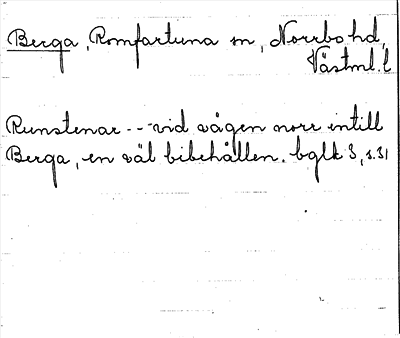 Berga, Romfartuna sn, Norrbo hd,
Västml. l
Runstenar --- vid vägen norr intill
Berga, en väl bibehållen. bglk 3, s. 31